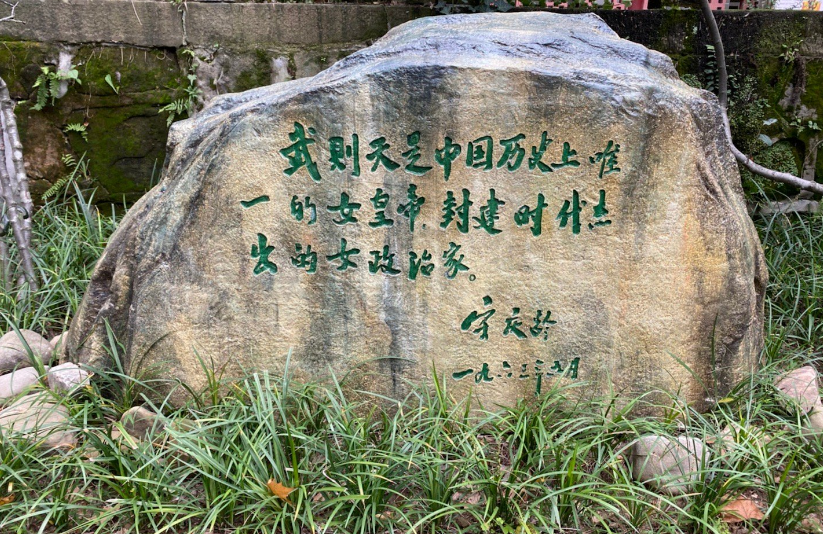 武则天是中国历史上唯
一的女皇帝，封建时代杰
出的女政治家。
宋庆龄
一九六三年七月